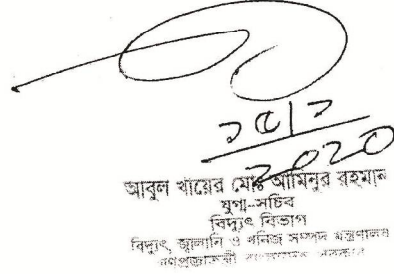 ১৫/১
২০২০
আবুল খায়ের মোঃ আমিনুর রহমান
যুগ্ম-সচিব
বিদ্যুৎ বিভাগ
বিদ্যুৎ, জ্বালানি ও খনিজ সম্পদ মন্ত্রণালয়
গণপ্রজাতন্ত্রী বাংলাদেশ সরকার